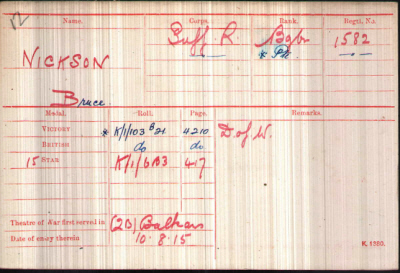 Name. Corps. Rank. Regtl. No.
NICKSON Suff. R. 1582
* Pte —"—
Bruce
Medal. Roll. Page. Remarks.
VICTORY * K/1/103 B21 4210 D of W.
BRITISH do do
15 STAR K/1/6B3 417
Theatre of War first served in (2B) Balkans
Date of entry therein 10-8-15
K. 1380.